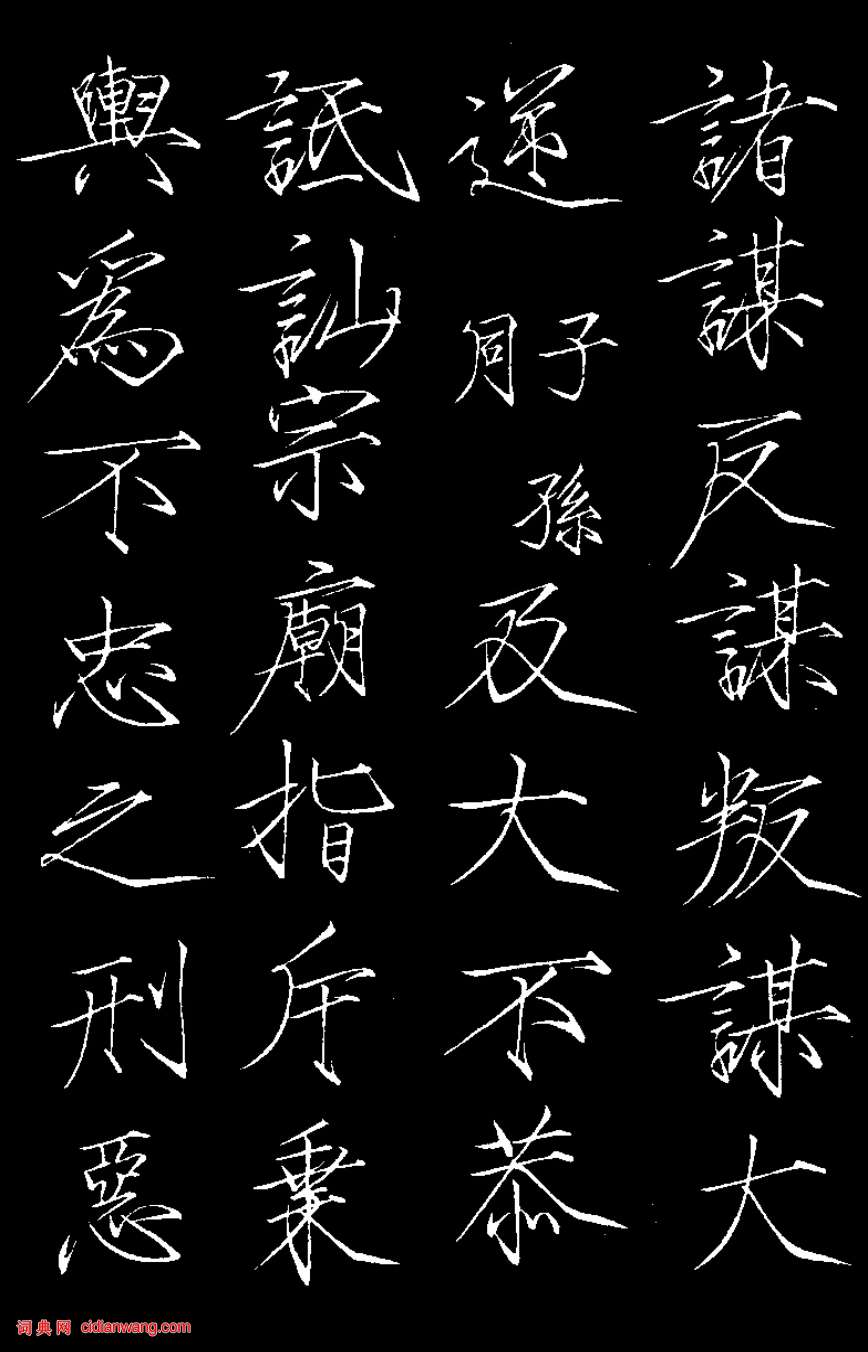 諸謀反謀叛謀大
逆子孫同及大不恭
詆訕宗廟指斥乘
輿爲不忠之刑惡
词典网 cidianwang.com